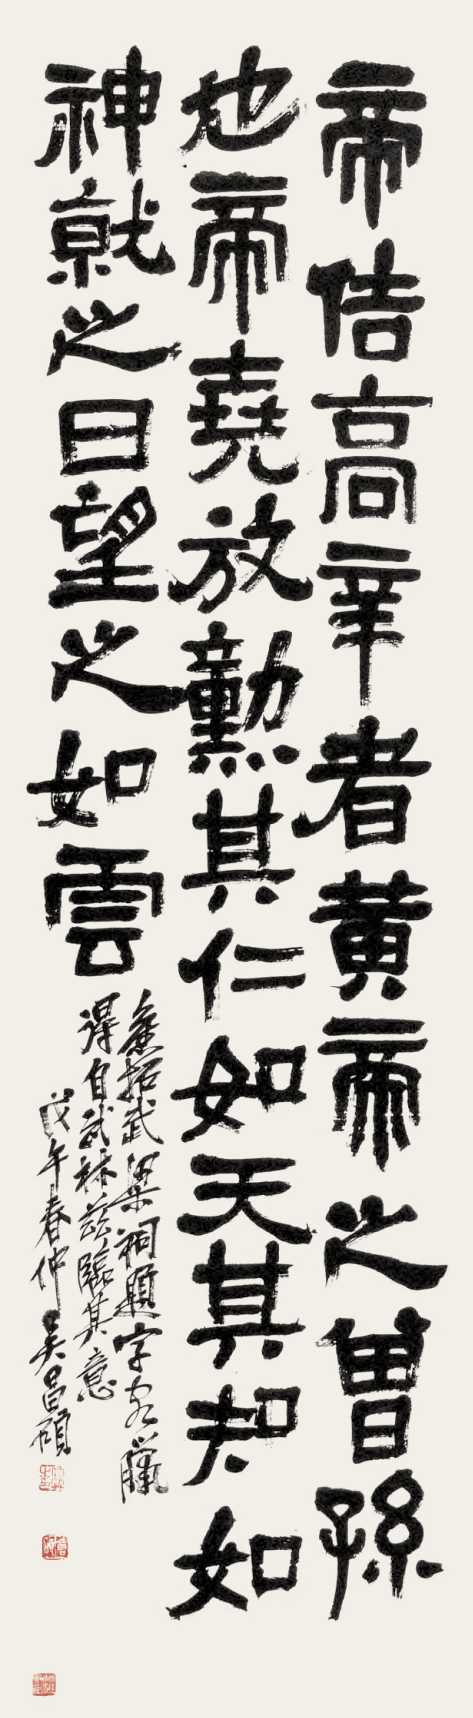 帝佶高辛者黄帝之曾孫
也帝堯放勲其仁如天其知如
神就之日望之如雲
舊拓武梁祠題字客臘
得自武林茲臨其意
戊午春仲吴昌碩